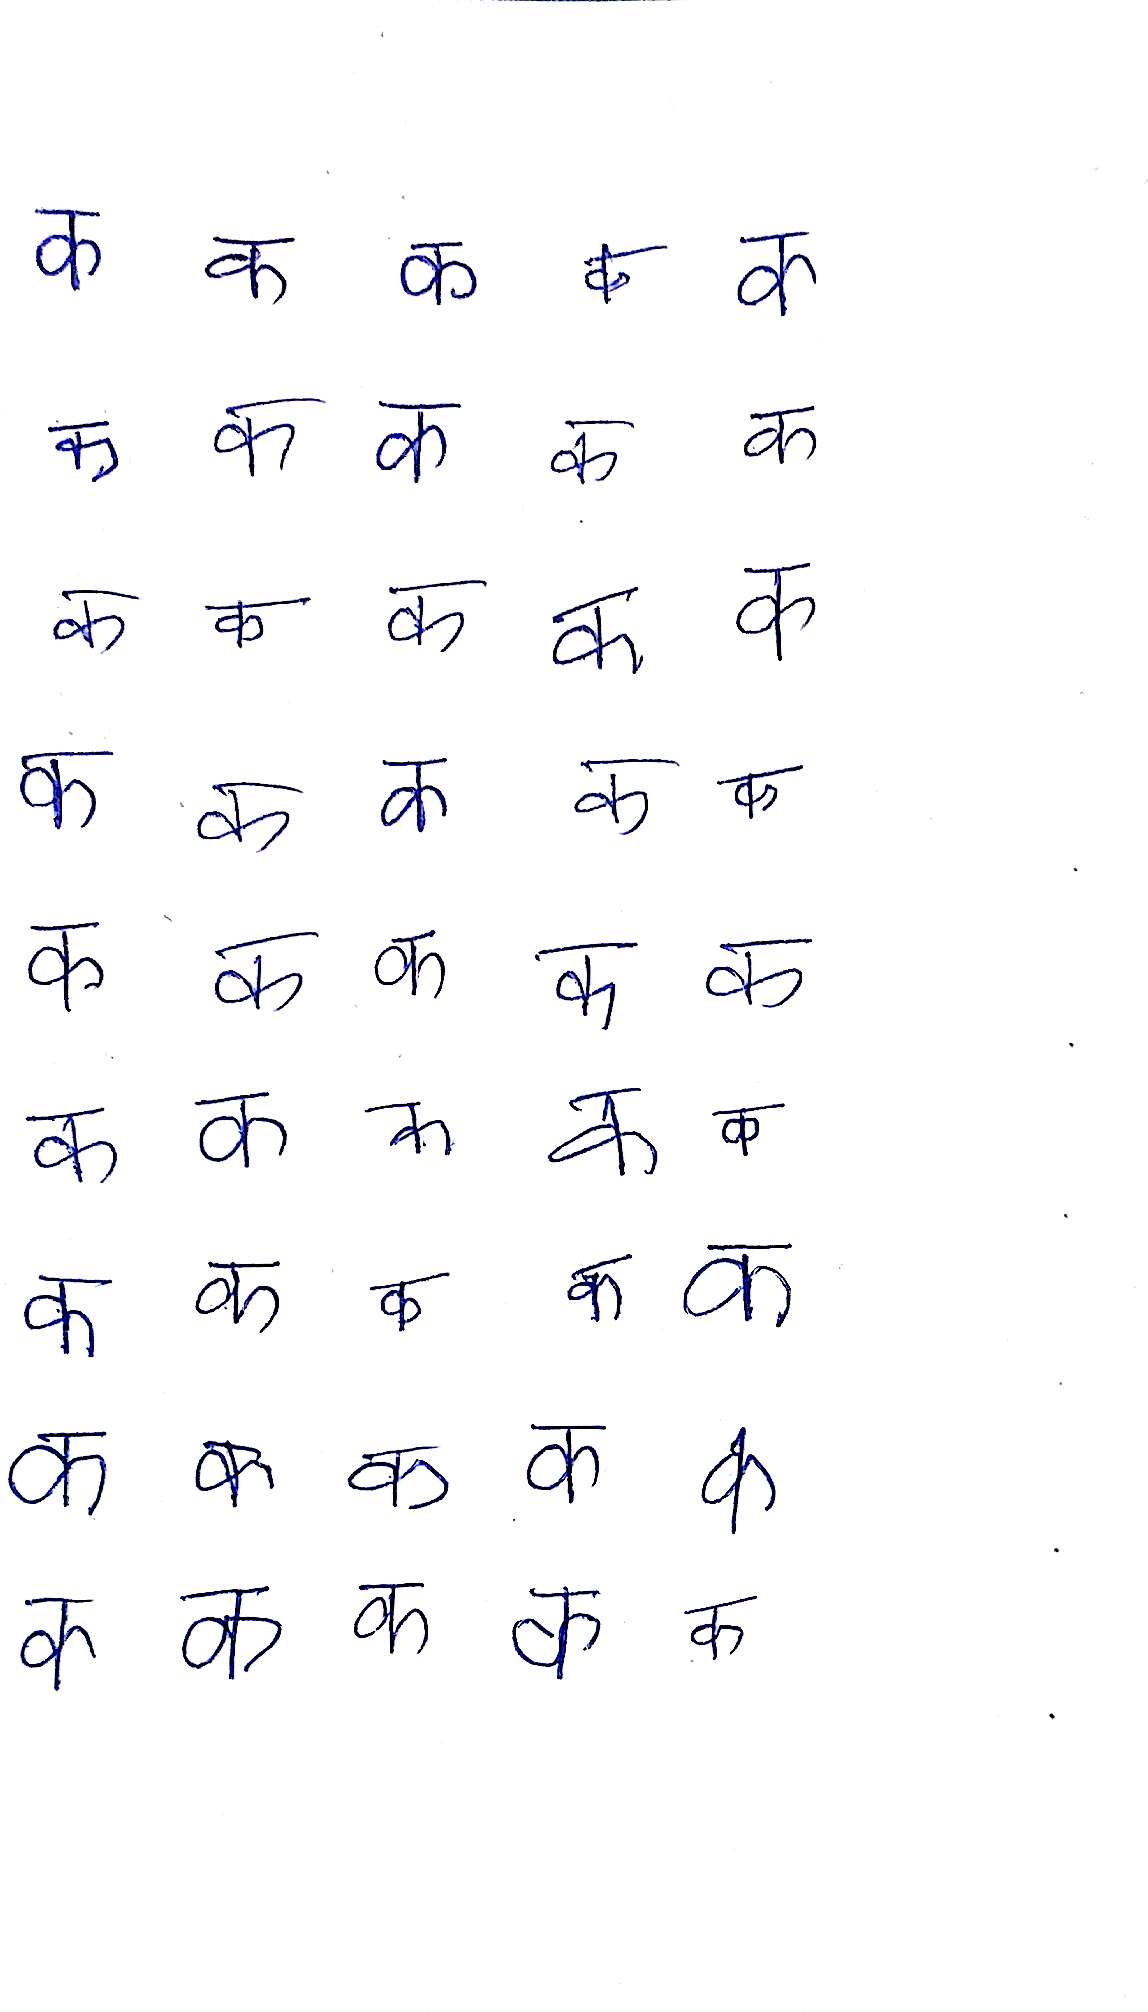 क क क क क
क क क क क
क क क क क
क क क क क
क क क क क
क क क क क
क क क क क
क क क क क
क क क क क